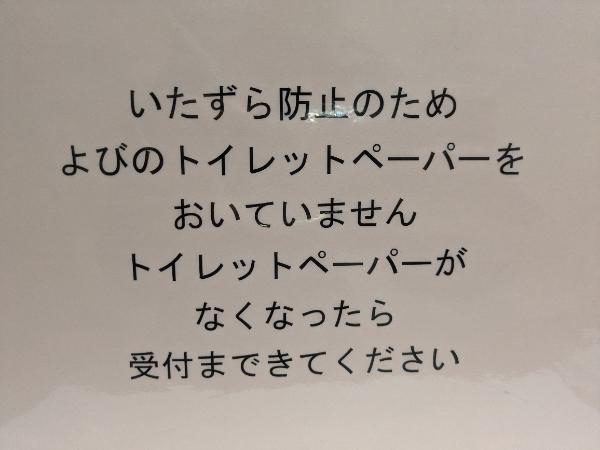 いたずら防止のため
よびのトイレットペーパーを
おいていません
トイレットペーパーが
なくなったら
受付まできてください